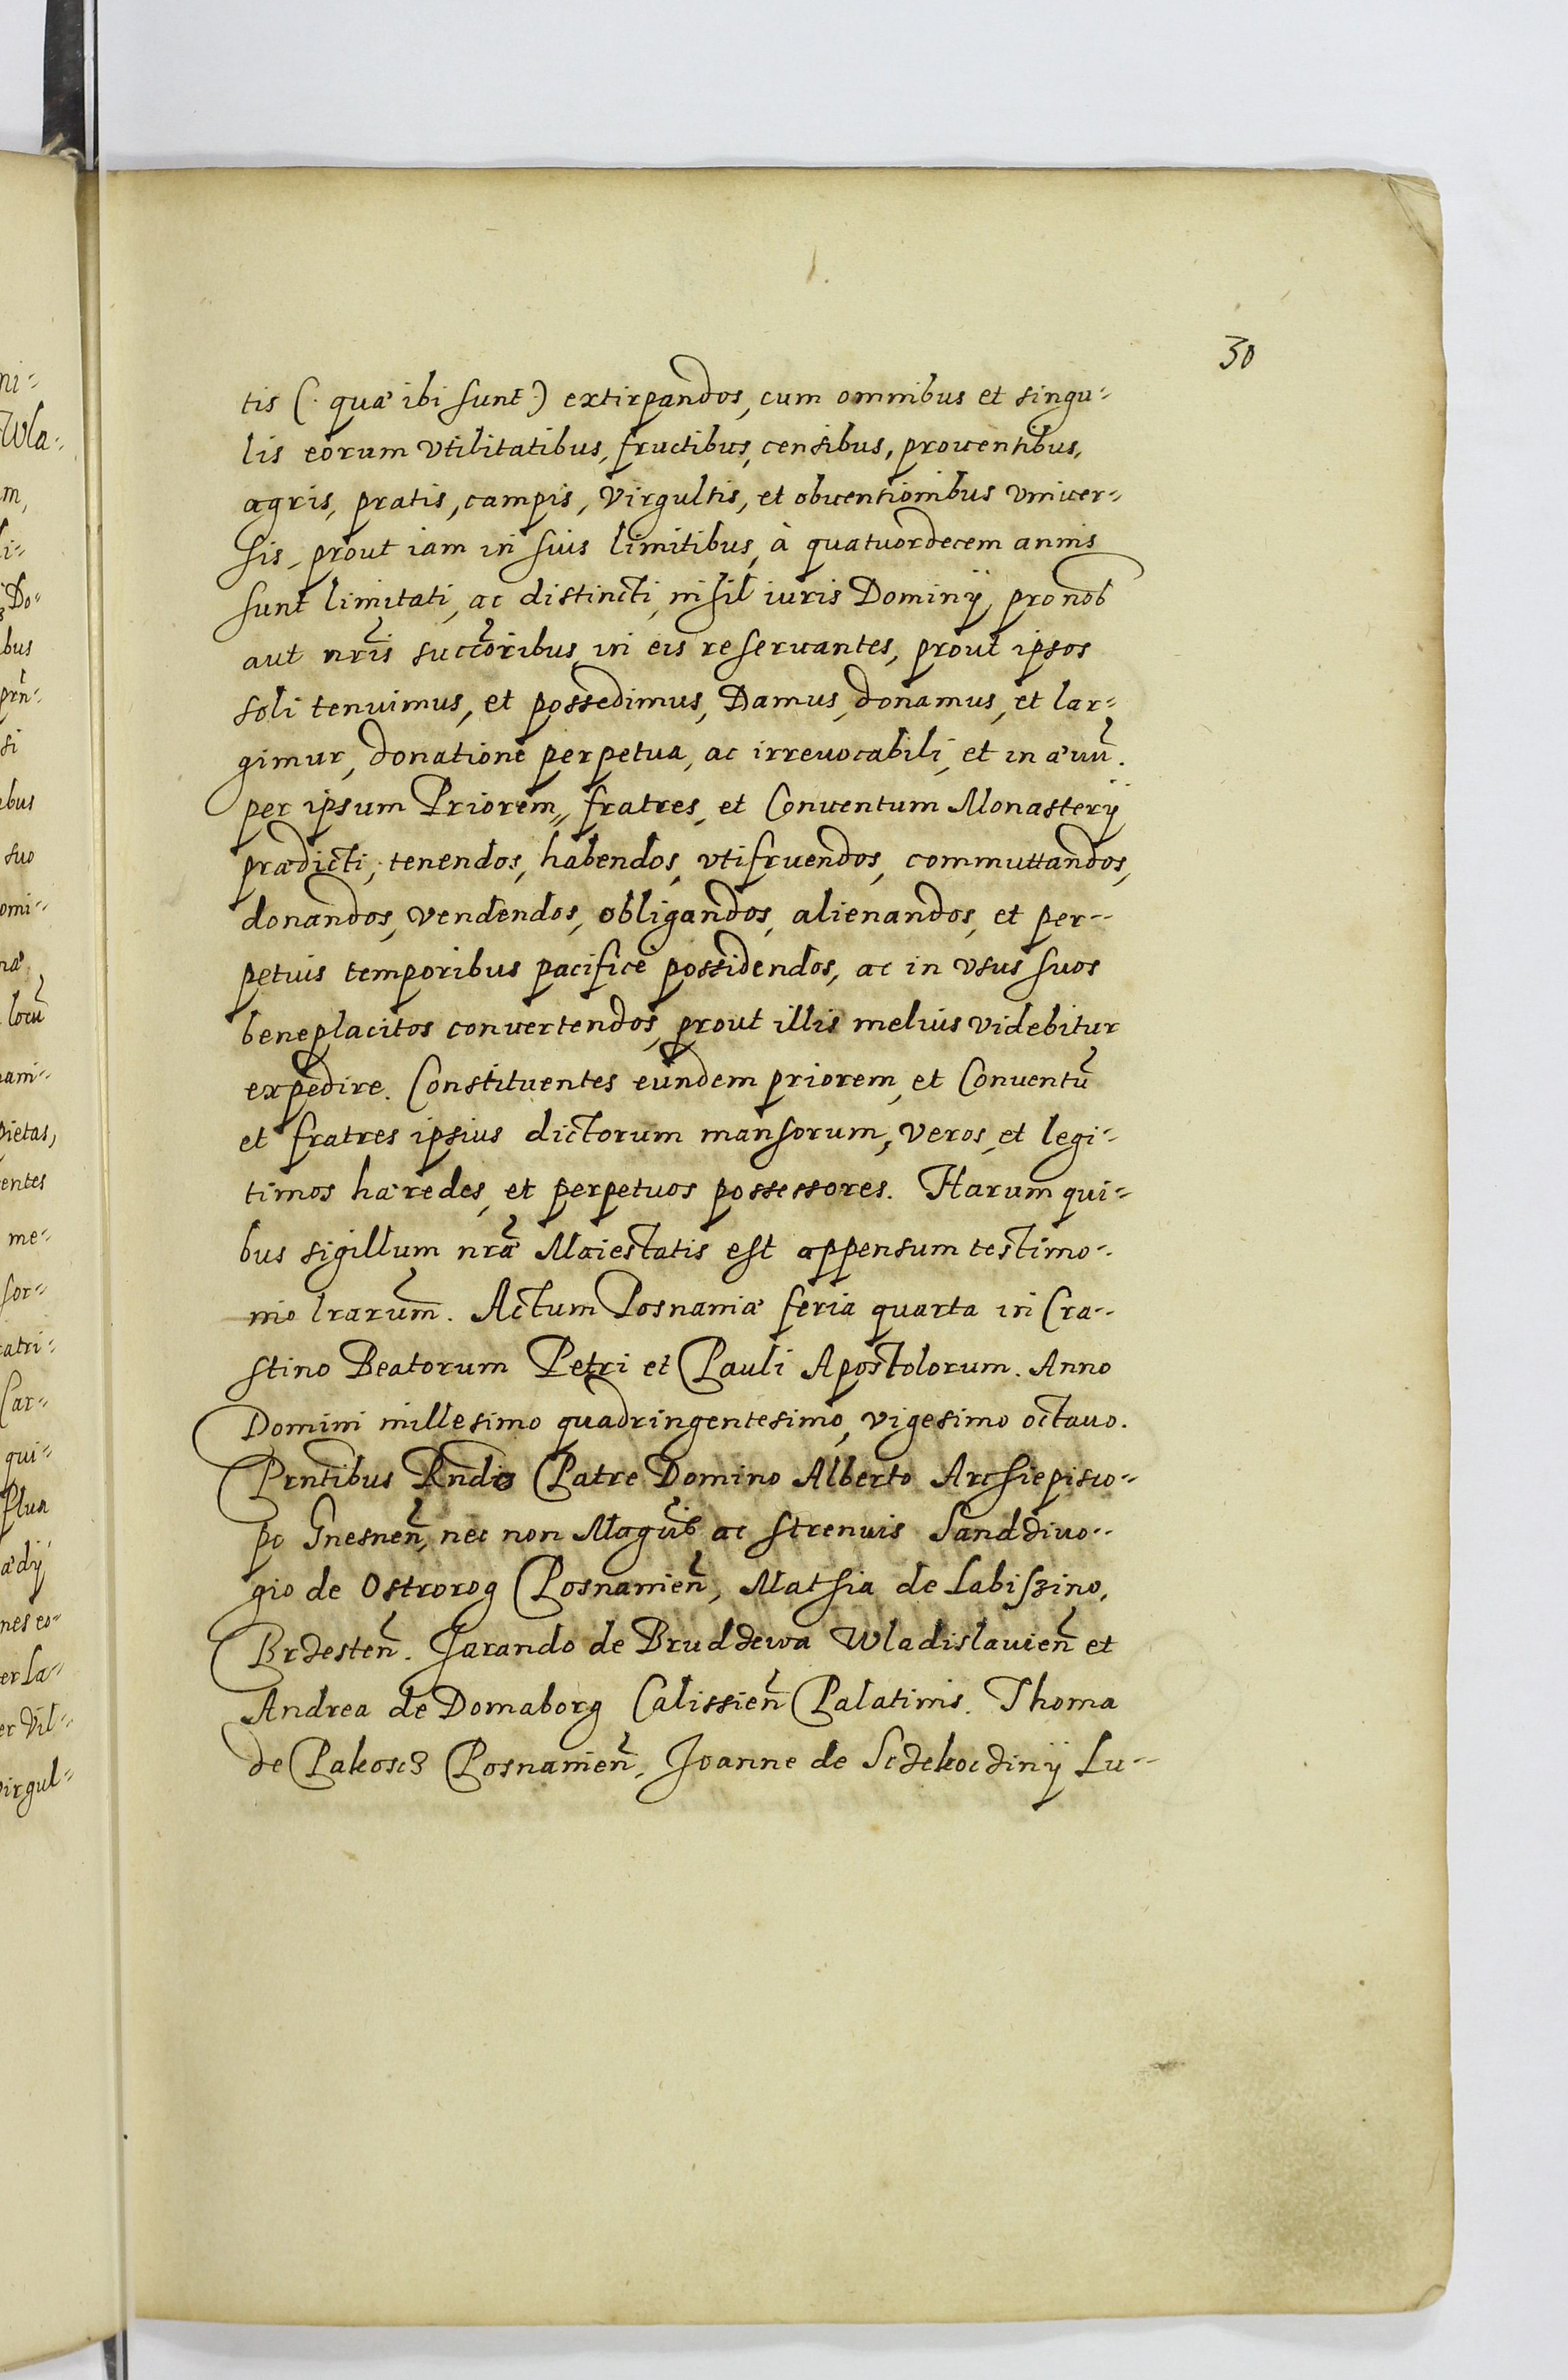 30
tis (. quæ ibi sunt .) extirpandos, cum omnibus et singu=
lis eorum vtilitatibus, fructibus, censibus, prouentibus,
agris, pratis, campis, virgultis, et obuentionibus vniuer=
sis, prout iam in suis limitibus, à quatuordecem annis
sunt limitati, ac distincti, nihil iuris Dominij pro nob
aut nr̃is succ̃oribus in eis reseruantes, prout ipsos
soli tenuimus, et possedimus, Damus, donamus, et lar=
gimur, donatione perpetua, ac irreuocabili, et in æuũ.
per ipsum Priorem, fratres, et Conuentum Monasterij
prædicti, tenendos, habendos, vtifruendos, commuttandos,
donandos, vendendos, obligandos, alienandos, et per=
petuis temporibus pacifice possidendos, ac in vsus suos
beneplacitos conuertendos, prout illis melius videbitur
expedire. Constituentes eundem priorem, et Conuentũ
et fratres ipsius dictorum mansorum, veros, et legi=
timos hæredes, et perpetuos possessores. Harum qui=
bus sigillum nr̃æ Maiestatis est appensum testimo=
nio lrarum̃. Actum Posnaniæ feria quarta in Cra=
stino Beatorum Petri et Pauli Apostolorum. Anno
Domini millesimo quadringentesimo, vigesimo octauo.
Prntibus Rndo Patre Domino Alberto Archiepisco=
po Gnesneñ, nec non Magcis ac strenuis Sanddiuo=
gio de Ostrorog Posnanieñ, Mathia de Labiszino,
Brdesteñ. Jarando de Bruddewa Wladislauieñ et
Andrea de Domaborg Calissieñ Palatinis. Thoma
de Pakosc3 Posnanieñ, Joanne de Scdekocdinij Lu=